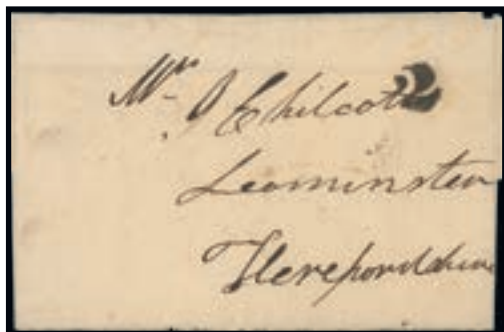 Mr J Chilcott 2
Leominster
Herefordshire